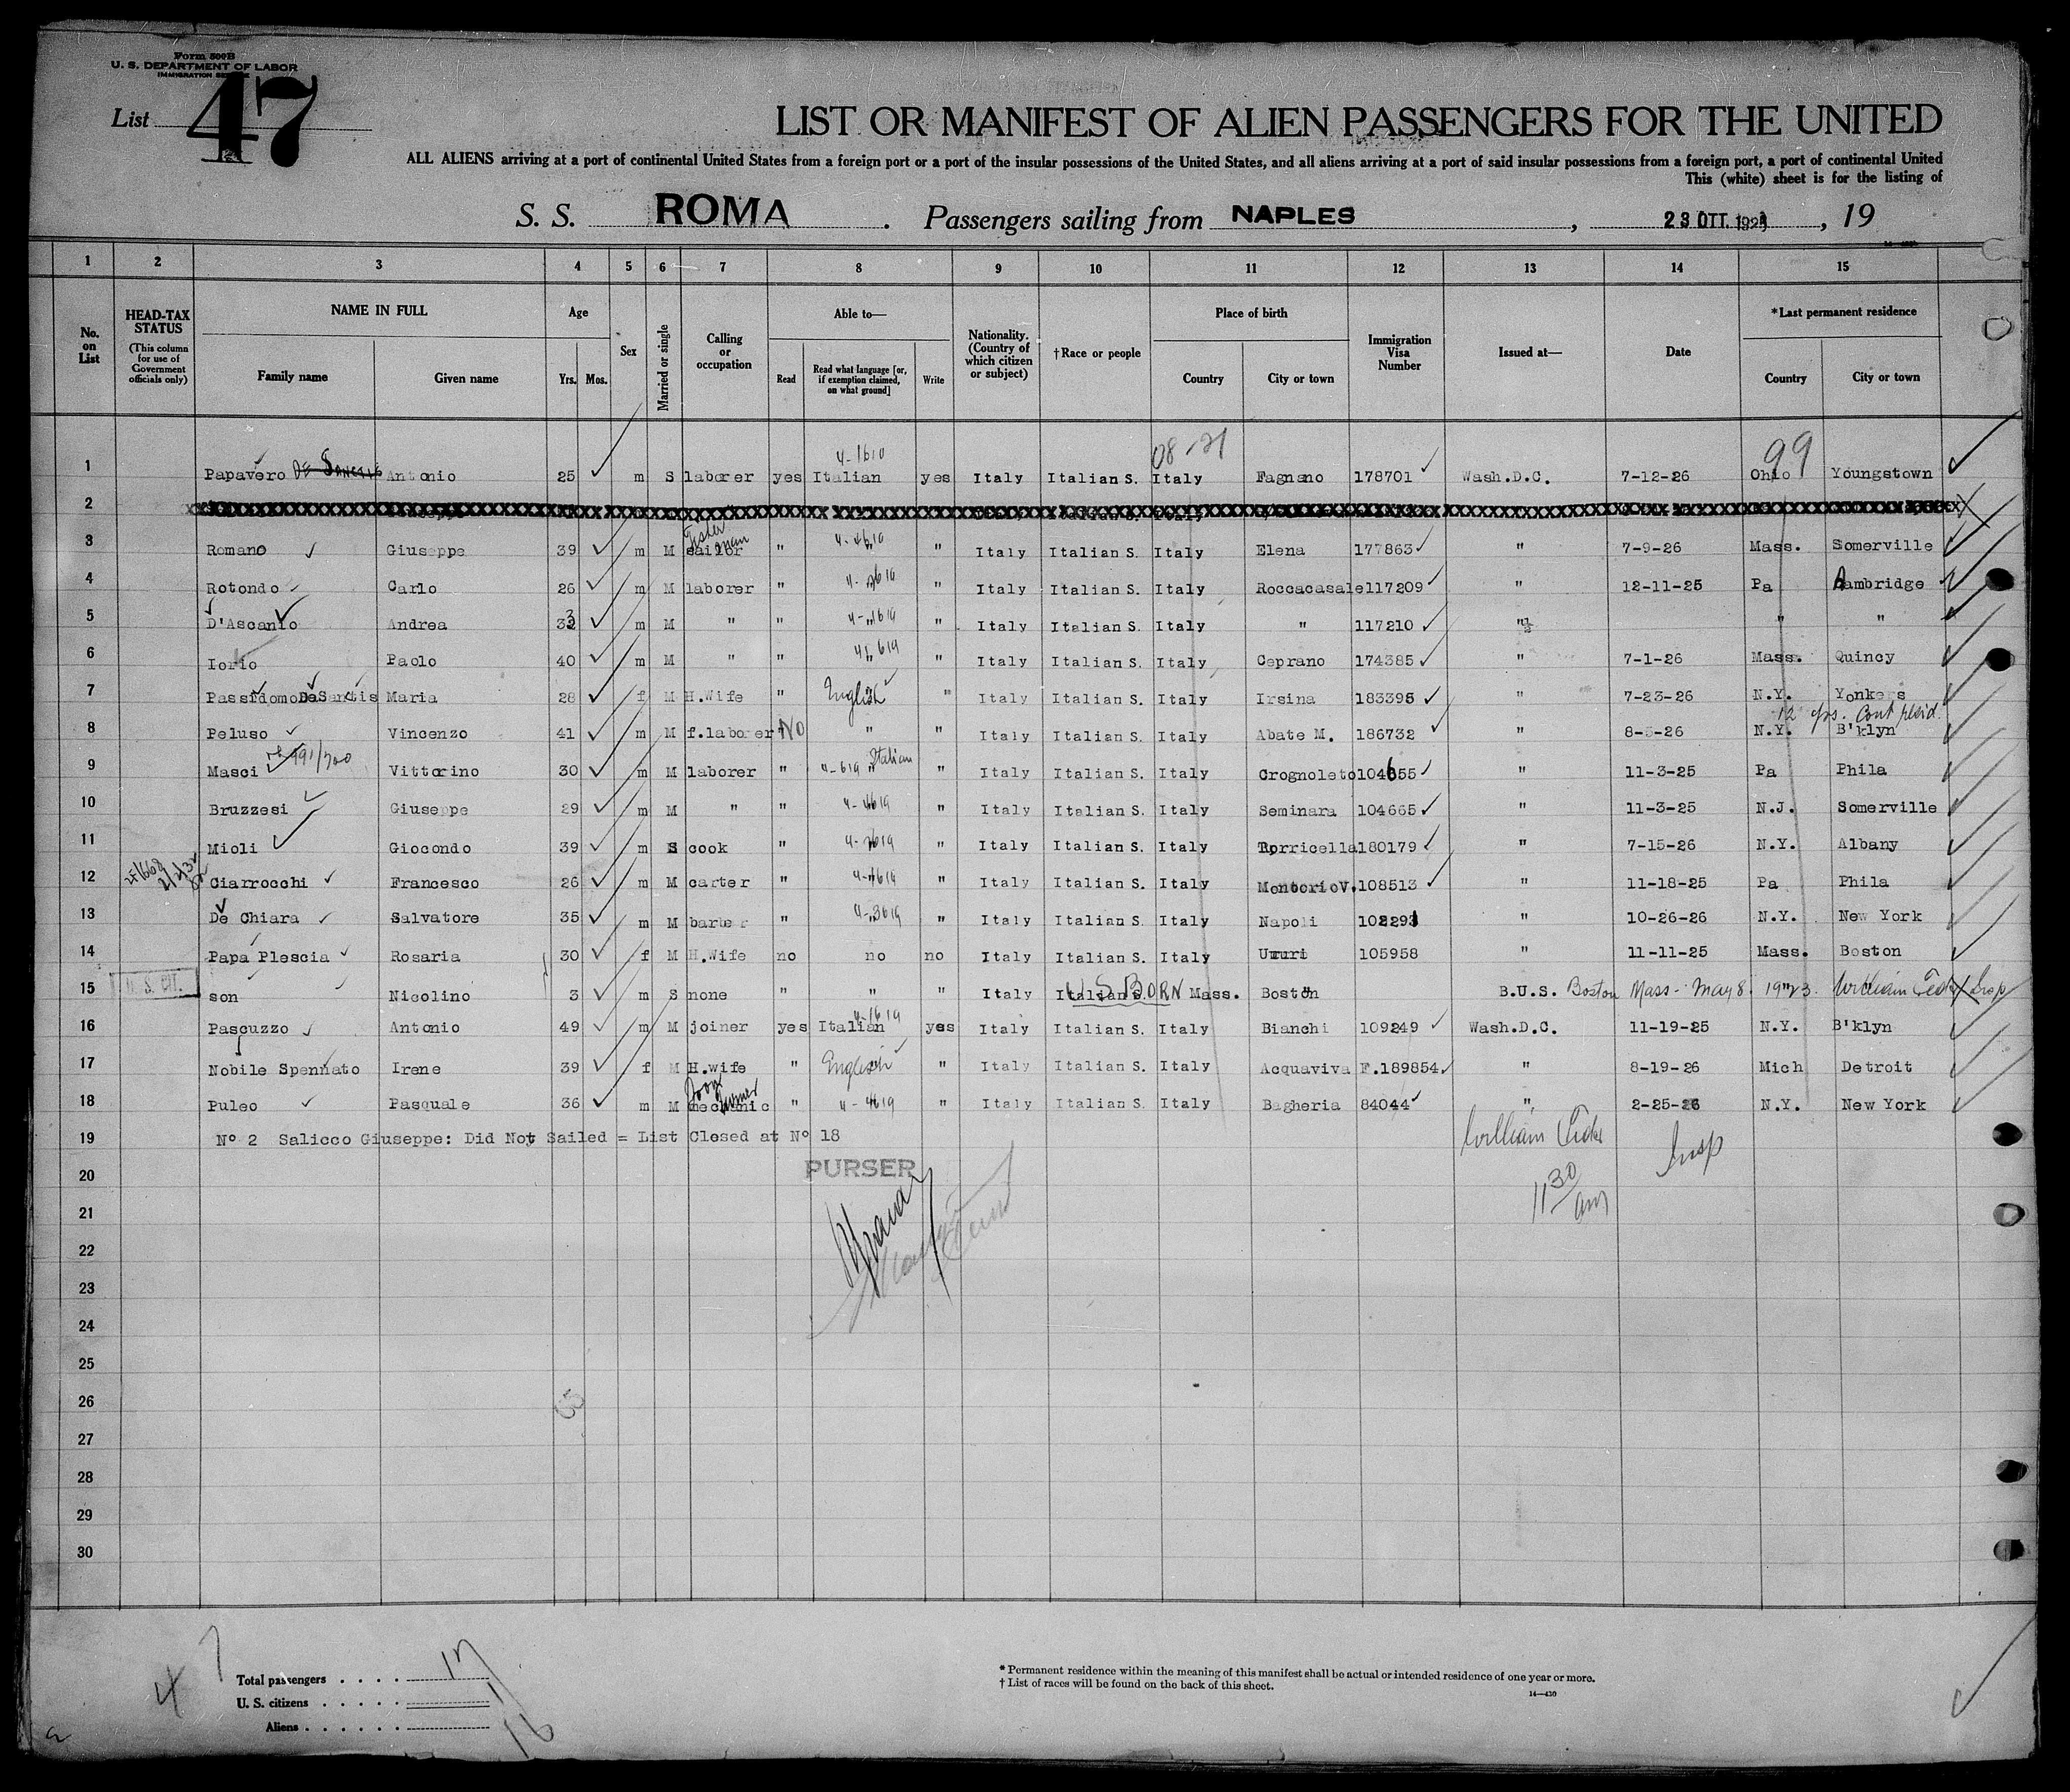 Form 500B
U. S. DEPARTMENT OF LABOR
IMMIGRATION SERVICE
List 47
LIST OR MANIFEST OF ALIEN PASSENGERS FOR THE UNITED
ALL ALIENS arriving at a port of continental United States from a foreign port or a port of the insular possessions of the United States, and all aliens arriving at a port of said insular possessions from a foreign port, a port of continental United
This (white) sheet is for the listing of
S. S. ROMA. Passengers sailing from NAPLES, 23 OTT. 192, 19
1 2 3 4 5 6 7 8 9 10 11 12 13 14 15
No. on List
HEAD-TAX STATUS (This column for use of Government officials only)
NAME IN FULL
Family name Given name
Age
Yrs. Mos.
Sex
Married or single
Calling or occupation
Able to—
Read Read what language [or, if exemption claimed, on what ground] Write
Nationality. (Country of which citizen or subject)
†Race or people
Place of birth
Country City or town
Immigration Visa Number
Issued at—
Date
*Last permanent residence
Country City or town
4-1610 08-21 99
1 Papavero De Sanctis Antonio 25 m S laborer yes Italian yes Italy Italian S. Italy Fagnano 178701 Wash.D.C. 7-12-26 Ohio Youngstown
2
3 Romano Giuseppe 39 m M sailor Fisherman " " Italy Italian S. Italy Elena 177863 " 7-9-26 Mass. Somerville
4 Rotondo Carlo 26 m M laborer " " Italy Italian S. Italy Roccacasale 117209 " 12-11-25 Pa Ambridge
5 D'Ascanio Andrea 33 m M " " " Italy Italian S. Italy " 117210 " " "
6 Iorio Paolo 40 m M " " " Italy Italian S. Italy Ceprano 174385 " 7-1-26 Mass. Quincy
7 Passidomo DeSantis Maria 28 f M H.Wife " English " Italy Italian S. Italy Irsina 183395 " 7-23-26 N.Y. Yonkers
12 yrs. Cont resid.
8 Peluso Vincenzo 41 m M f.laborer No " " Italy Italian S. Italy Abate M. 186732 " 8-5-26 N.Y. B'klyn
9 Masci 991/700 Vittorino 30 m M laborer " 4-619 Italian " Italy Italian S. Italy Crognoleto 104655 " 11-3-25 Pa Phila
10 Bruzzesi Giuseppe 29 m M " " " Italy Italian S. Italy Seminara 104665 " 11-3-25 N.J. Somerville
11 Mioli Giocondo 39 m S cook " " Italy Italian S. Italy Torricella 180179 " 7-15-26 N.Y. Albany
12 Ciarrocchi Francesco 26 m M carter " " Italy Italian S. Italy MontorioV. 108513 " 11-18-25 Pa Phila
13 De Chiara Salvatore 35 m M barber " 4-3619 " Italy Italian S. Italy Napoli 102291 " 10-26-26 N.Y. New York
14 Papa Plescia Rosaria 30 f M H.Wife no no no Italy Italian S. Italy Ururi 105958 " 11-11-25 Mass. Boston
15 U. S. CIT. son Nicolino 3 m S none " " " Italy Italian S. U.S. BORN Mass. Boston B.U.S. Boston Mass- May 8 1923 William Insp
16 Pascuzzo Antonio 49 m M joiner yes Italian 4-1619 yes Italy Italian S. Italy Bianchi 109249 Wash.D.C. 11-19-25 N.Y. B'klyn
17 Nobile Spennato Irene 39 f M H.wife " English " Italy Italian S. Italy Acquaviva F. 189854 " 8-19-26 Mich Detroit
18 Puleo Pasquale 36 m M mechanic " 4-4619 " Italy Italian S. Italy Bagheria 84044 " 2-25-26 N.Y. New York
19 Nº 2 Salicco Giuseppe: Did Not Sailed = List Closed at Nº 18
William Insp
20 PURSER
11 30 am
21
22
23
24
25
26
27
28
29
30
Total passengers . . . . 17
U. S. citizens . . . . . 1
Aliens . . . . . . 16
* Permanent residence within the meaning of this manifest shall be actual or intended residence of one year or more.
† List of races will be found on the back of this sheet.
14—430